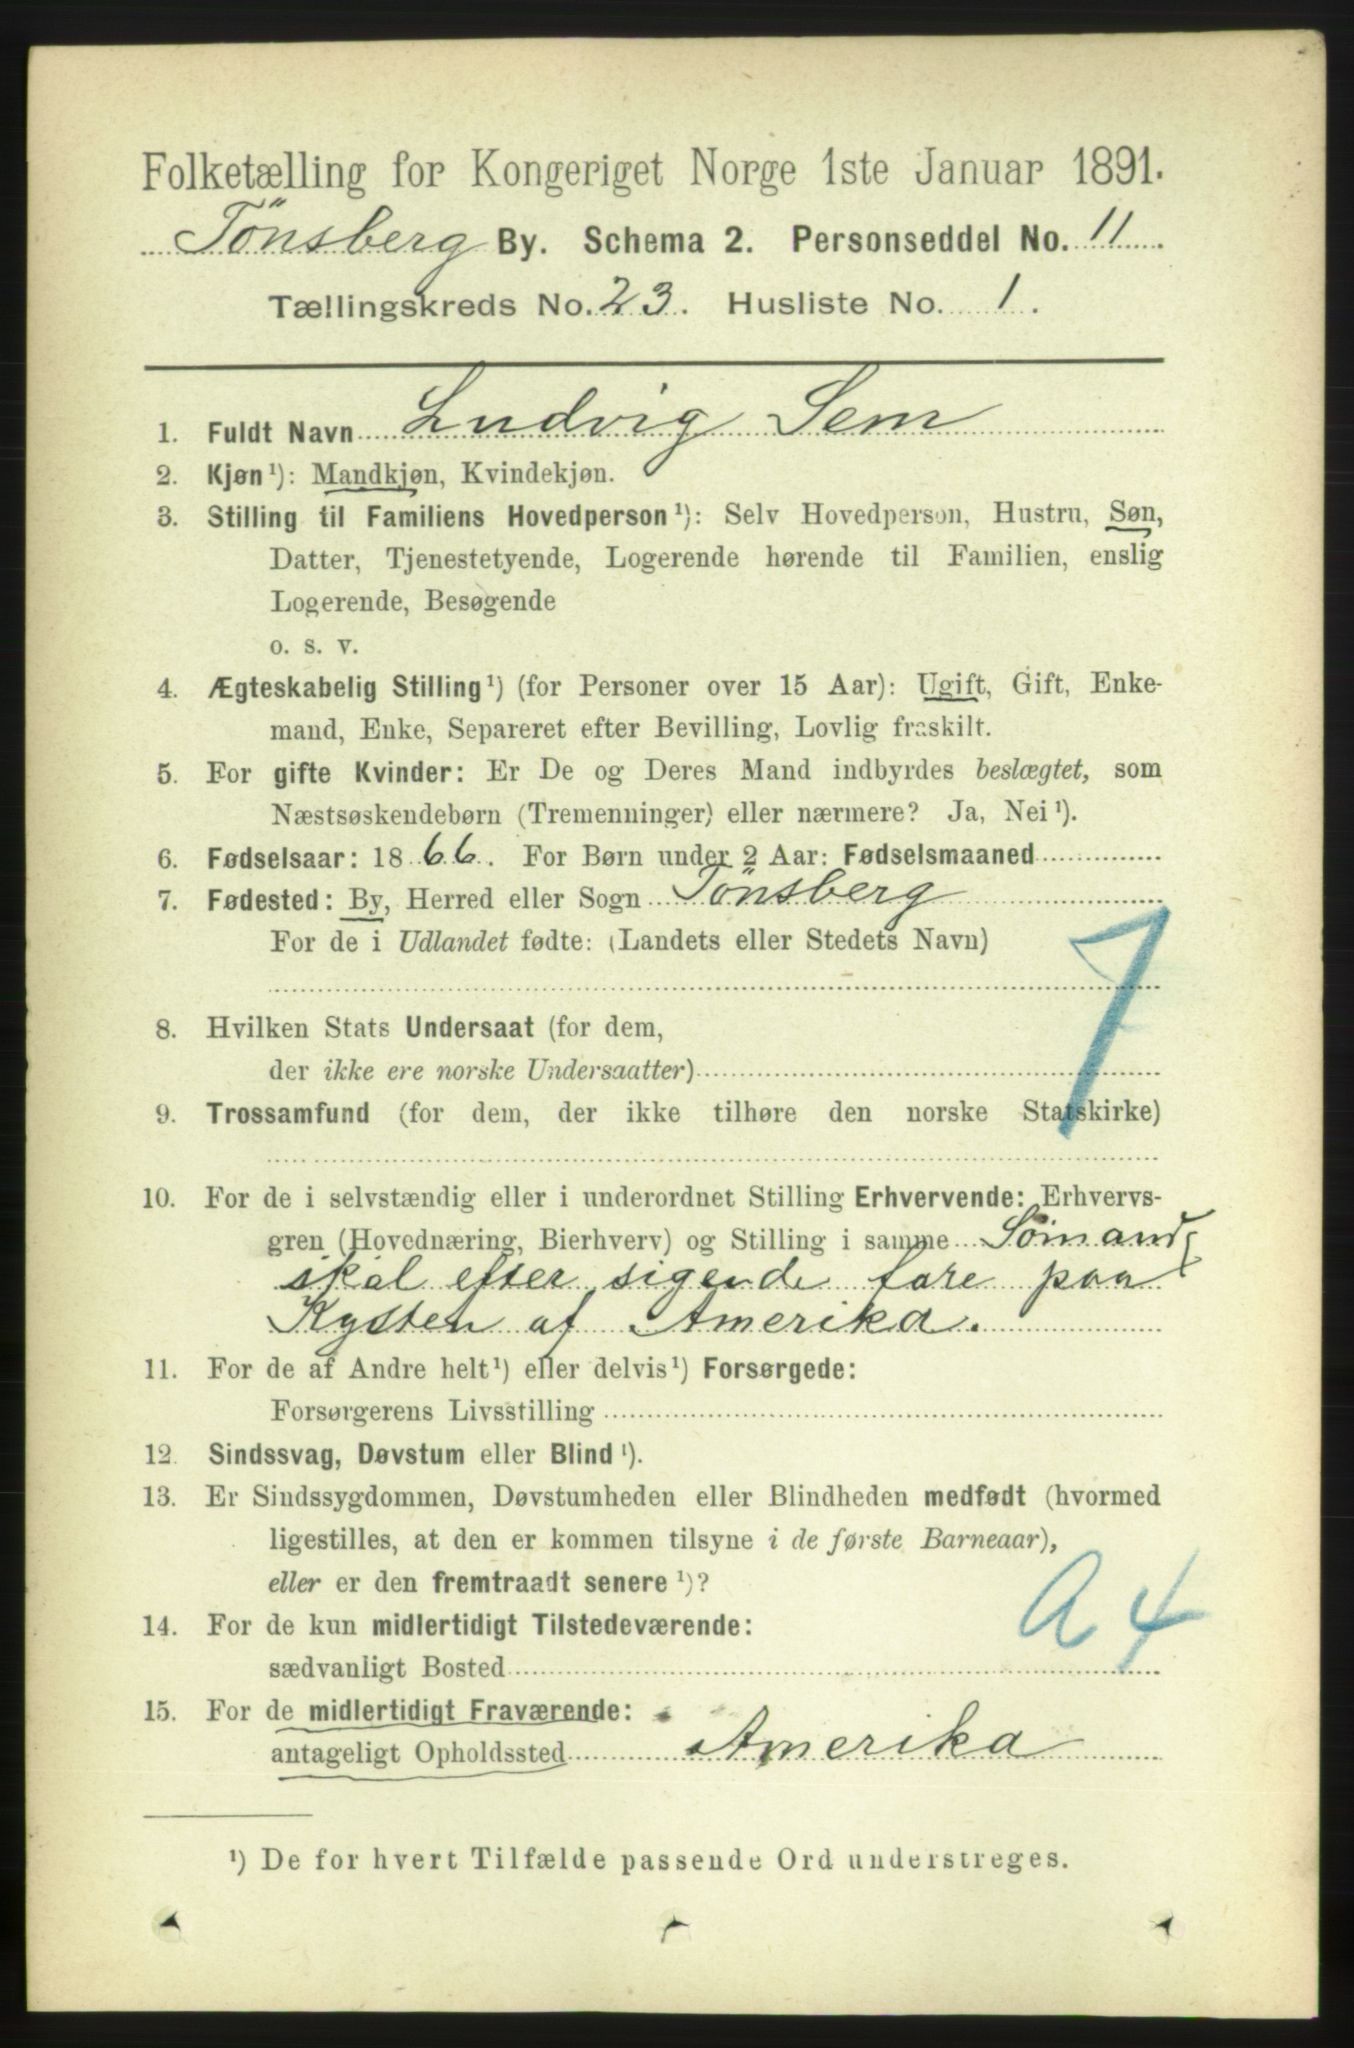 Folketælling for Kongeriget Norge 1ste Januar 1891.
Tönsberg By. Schema 2. Personseddel No. 11.
Tællingskreds No. 23. Husliste No. 1.
1. Fuldt Navn Ludvig Sem
2. Kjøn ¹): Mandkjøn, Kvindekjøn.
3. Stilling til Familiens Hovedperson ¹): Selv Hovedperson, Hustru, Søn,
Datter, Tjenestetyende, Logerende hørende til Familien, enslig
Logerende, Besøgende
o. s. v.
4. Ægteskabelig Stilling ¹) (for Personer over 15 Aar): Ugift, Gift, Enke-
mand, Enke, Separeret efter Bevilling, Lovlig fraskilt.
5. For gifte Kvinder: Er De og Deres Mand indbyrdes beslægtet, som
Næstsøskendebørn (Tremenninger) eller nærmere? Ja, Nei ¹).
6. Fødselsaar: 1866. For Børn under 2 Aar: Fødselsmaaned
7. Fødested: By, Herred eller Sogn Tönsberg
For de i Udlandet fødte: (Landets eller Stedets Navn)
7
8. Hvilken Stats Undersaat (for dem,
der ikke ere norske Undersaatter)
9. Trossamfund (for dem, der ikke tilhøre den norske Statskirke)
10. For de i selvstændig eller i underordnet Stilling Erhvervende: Erhvervs-
gren (Hovednæring, Bierhverv) og Stilling i samme Sömand
skal efter sigende fare paa
Kysten af Amerika.
11. For de af Andre helt ¹) eller delvis ¹) Forsørgede:
Forsørgerens Livsstilling
12. Sindssvag, Døvstum eller Blind ¹).
13. Er Sindssygdommen, Døvstumheden eller Blindheden medfødt (hvormed
ligestilles, at den er kommen tilsyne i de første Barneaar),
eller er den fremtraadt senere ¹)?
A 4
14. For de kun midlertidigt Tilstedeværende:
sædvanligt Bosted
15. For de midlertidigt Fraværende:
antageligt Opholdssted Amerika
¹) De for hvert Tilfælde passende Ord understreges.